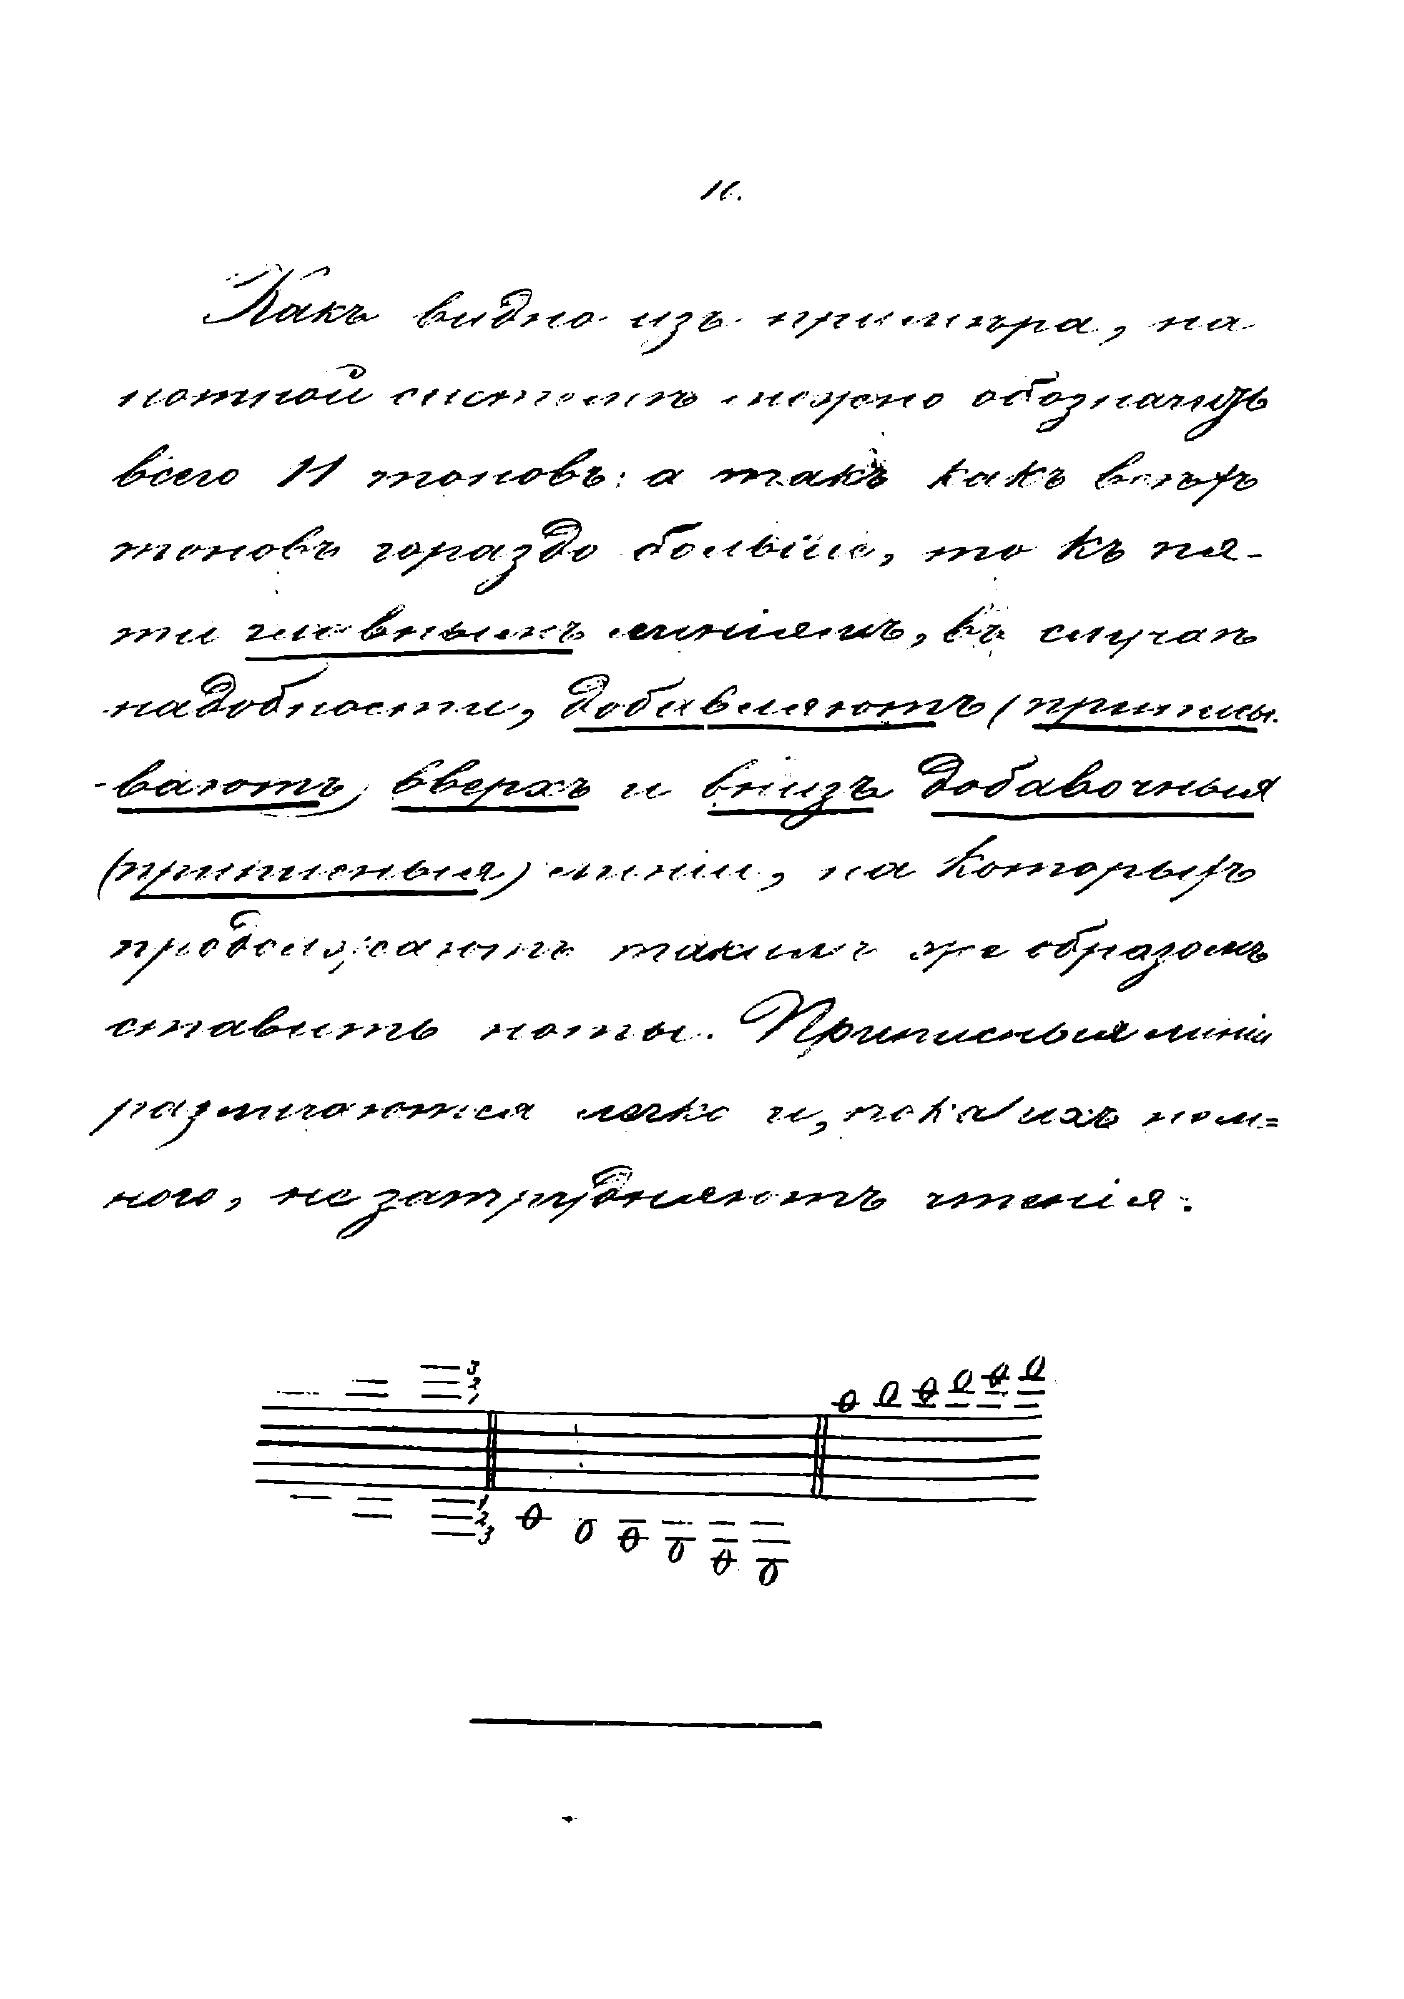 11.
Какъ видно изъ примѣра, на
нотной системѣ можно обозначить
всего 11 тоновъ: а такъ какъ всѣхъ
тоновъ гораздо больше, то къ пя-
ти главнымъ линіямъ, въ случаѣ
надобности, добавляютъ (приписы-
-ваютъ) вверхъ и внизъ добавочныя
(приписныя) линіи, на которыхъ
продолжаютъ такимъ же образомъ
ставить ноты. Приписныя линіи
различаются легко и, пока ихъ нем=
ного, не затрудняютъ чтенія.
3
2
1
1
2
3